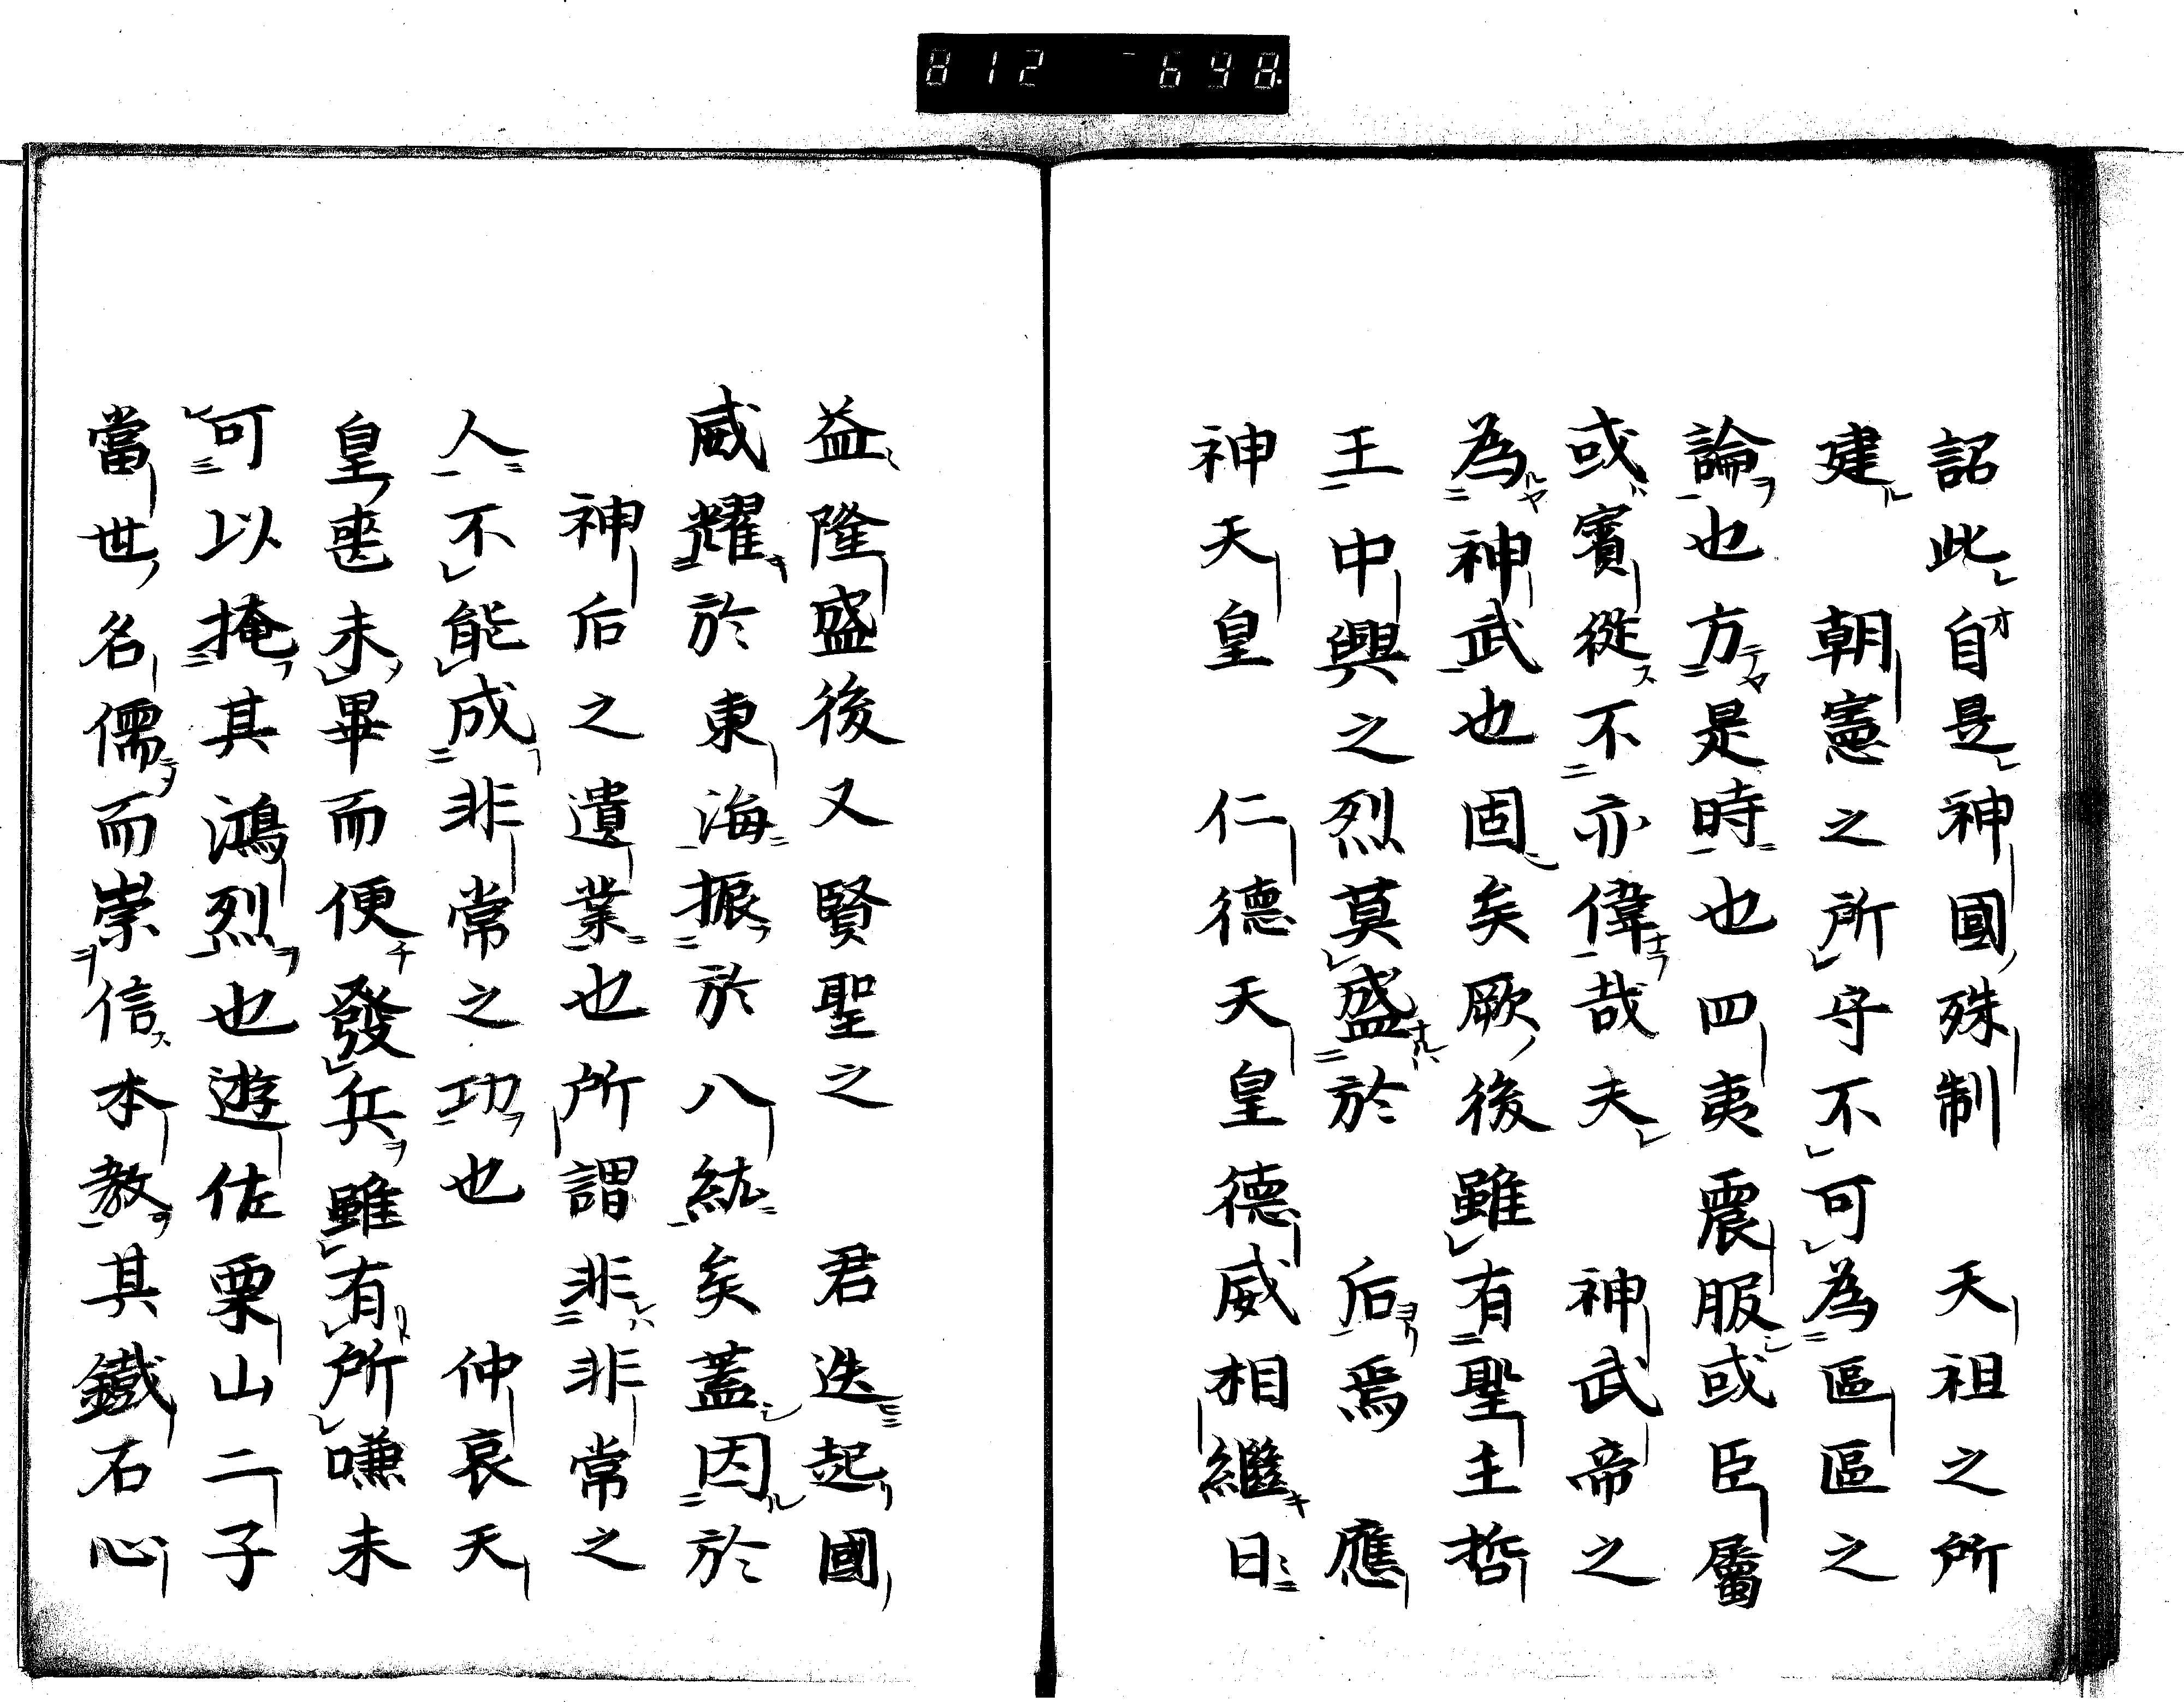 812 - 698.
詔此自是神國殊制　天祖之所
建　朝憲之所守不可為區區之
論也方是時也四夷震服或臣屬
或賓從不亦偉哉夫　神武帝之
為神武也固矣厥後雖有聖主哲
王中興之烈莫盛於　后焉　應
神天皇　仁德天皇德威相繼日
益隆盛後又賢聖之　君迭起國
威耀於東海振於八紘矣蓋因於
神后之遺業也所謂非非常之
人不能成非常之功也　仲哀天
皇喪未畢而便發兵雖有所嗛未
可以掩其鴻烈也遊佐栗山二子
當世名儒而崇信本教其鐵石心